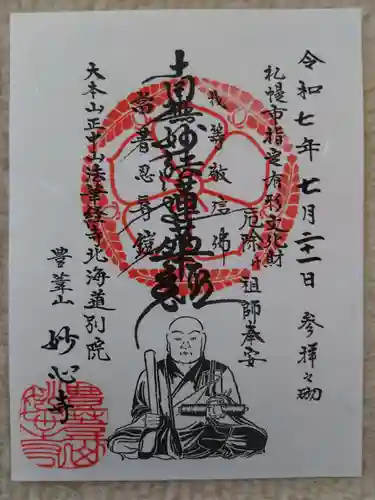 令和七年七月二十一日 参拝之砌
札幌市指定有形文化財
厄除け祖師奉安
我等敬信佛
南無妙法蓮華経
當著忍辱鎧
大本山正中山法華経寺北海道別院
豊葦山
妙心寺